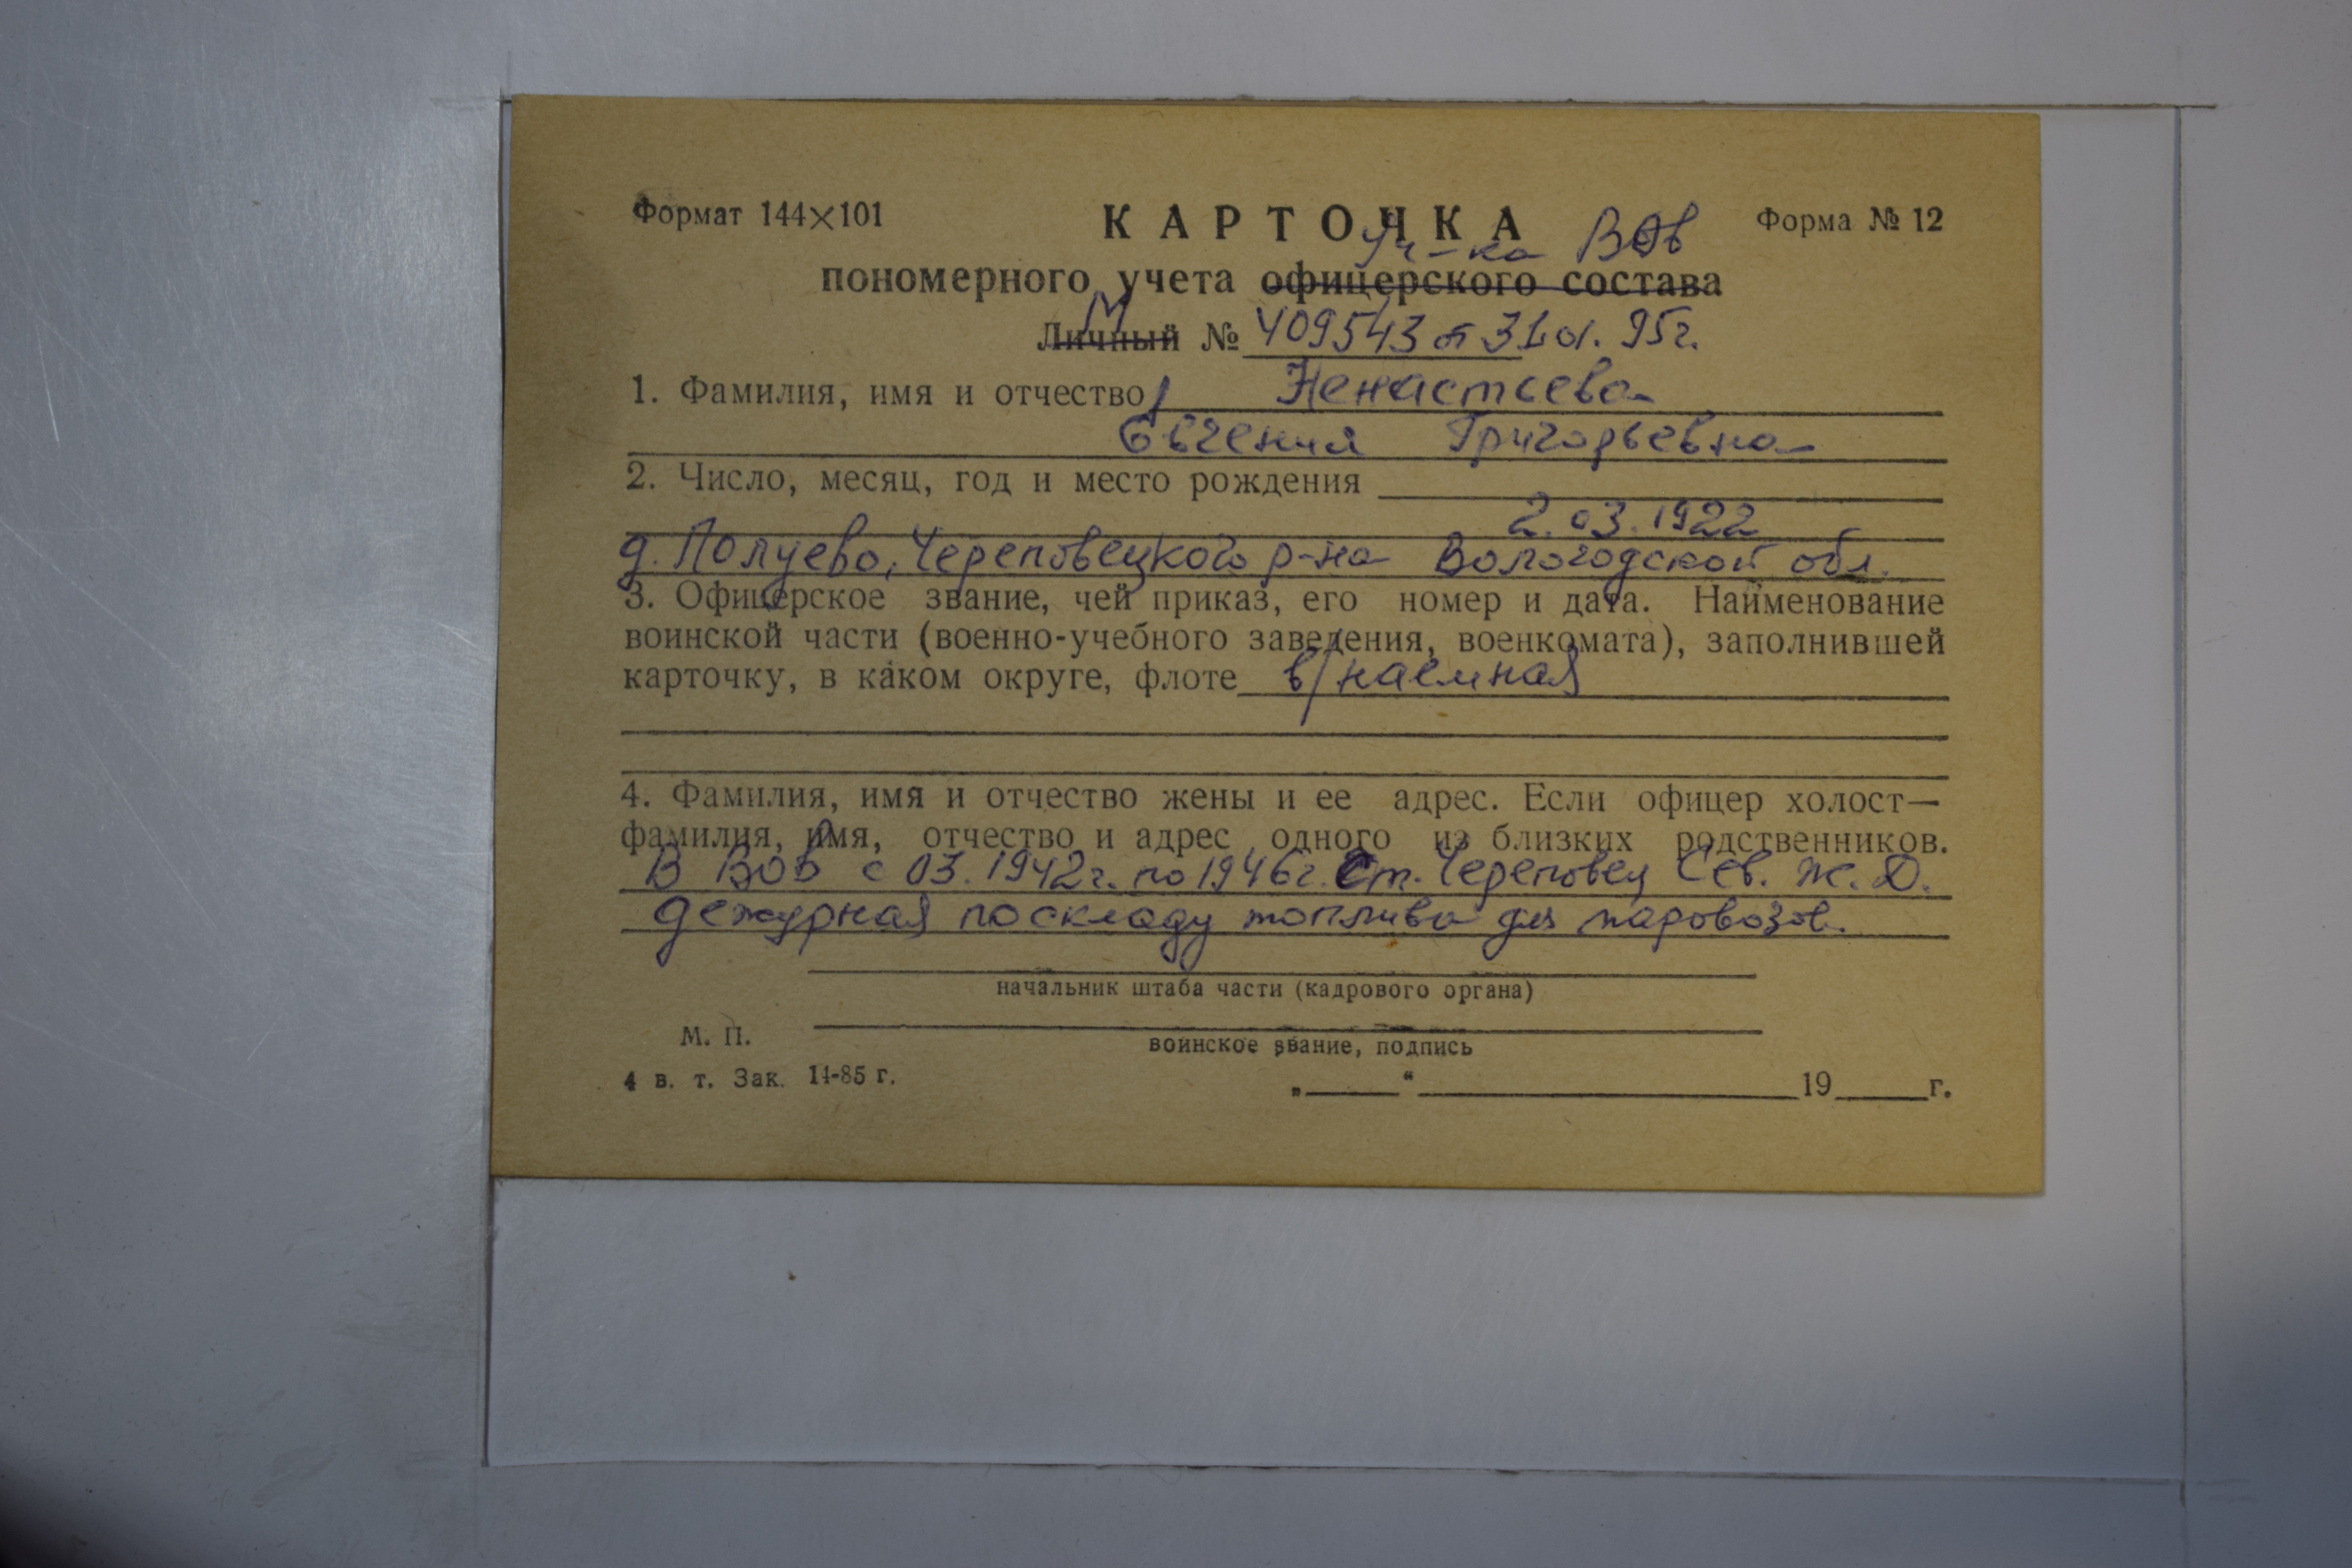 Формат 144×101 КАРТОЧКА Форма № 12
Уч-ка ВОв
пономерного учета офицерского состава
М
Личный № 409543 от 31.01.95г.
1. Фамилия, имя и отчество Ненастьева
Евгения Григорьевна
2. Число, месяц, год и место рождения
2.03.1922
д. Полуево, Череповецкого р-на Вологодской обл.
3. Офицерское звание, чей приказ, его номер и дата. Наименование
воинской части (военно-учебного заведения, военкомата), заполнившей
карточку, в каком округе, флоте в/наемная
4. Фамилия, имя и отчество жены и ее адрес. Если офицер холост—
фамилия, имя, отчество и адрес одного из близких родственников.
В ВОВ с 03.1942г. по 1946г. Ст. Череповец Сев. Ж.Д.
дежурная по складу топлива для паровозов.
начальник штаба части (кадрового органа)
М. П.
воинское звание, подпись
4 в. т. Зак. 14-85 г.
„____“ ____________ 19____г.